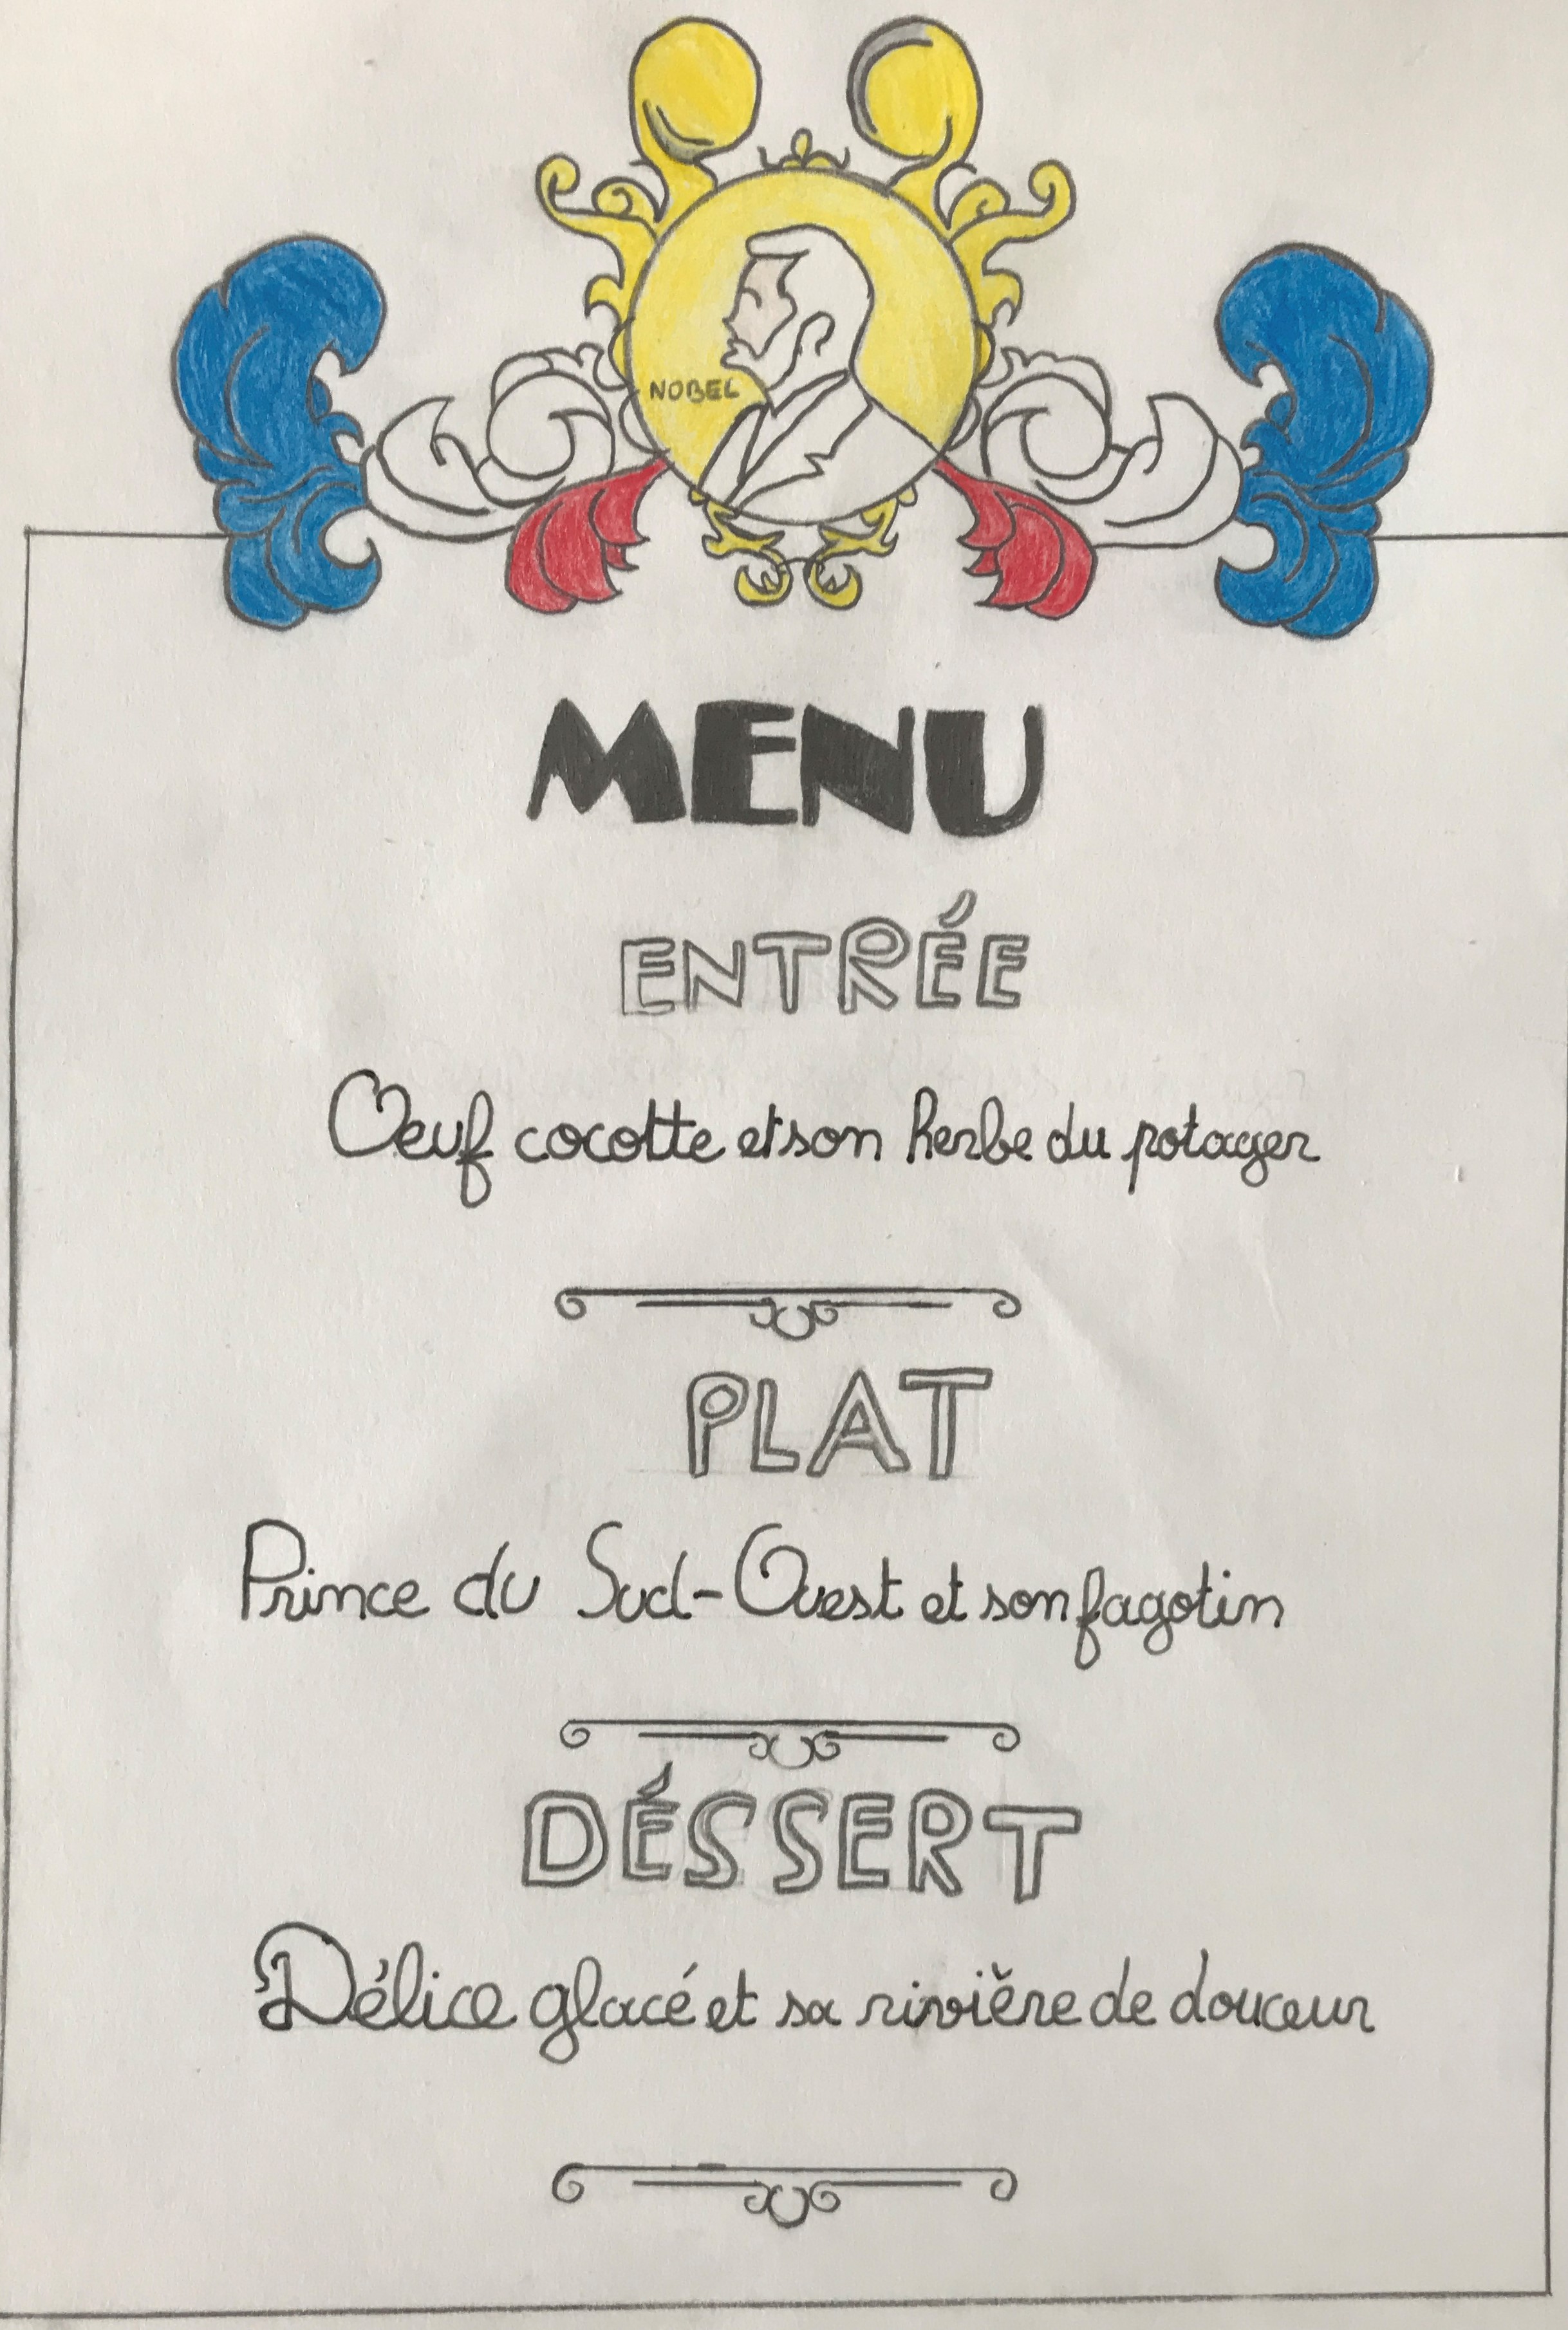 NOBEL
MENU
ENTRÉE
Oeuf cocotte et son herbe du potager
PLAT
Prince du Sud-Ouest et son fagotin
DÉSSERT
Délice glacé et sa rivière de douceur